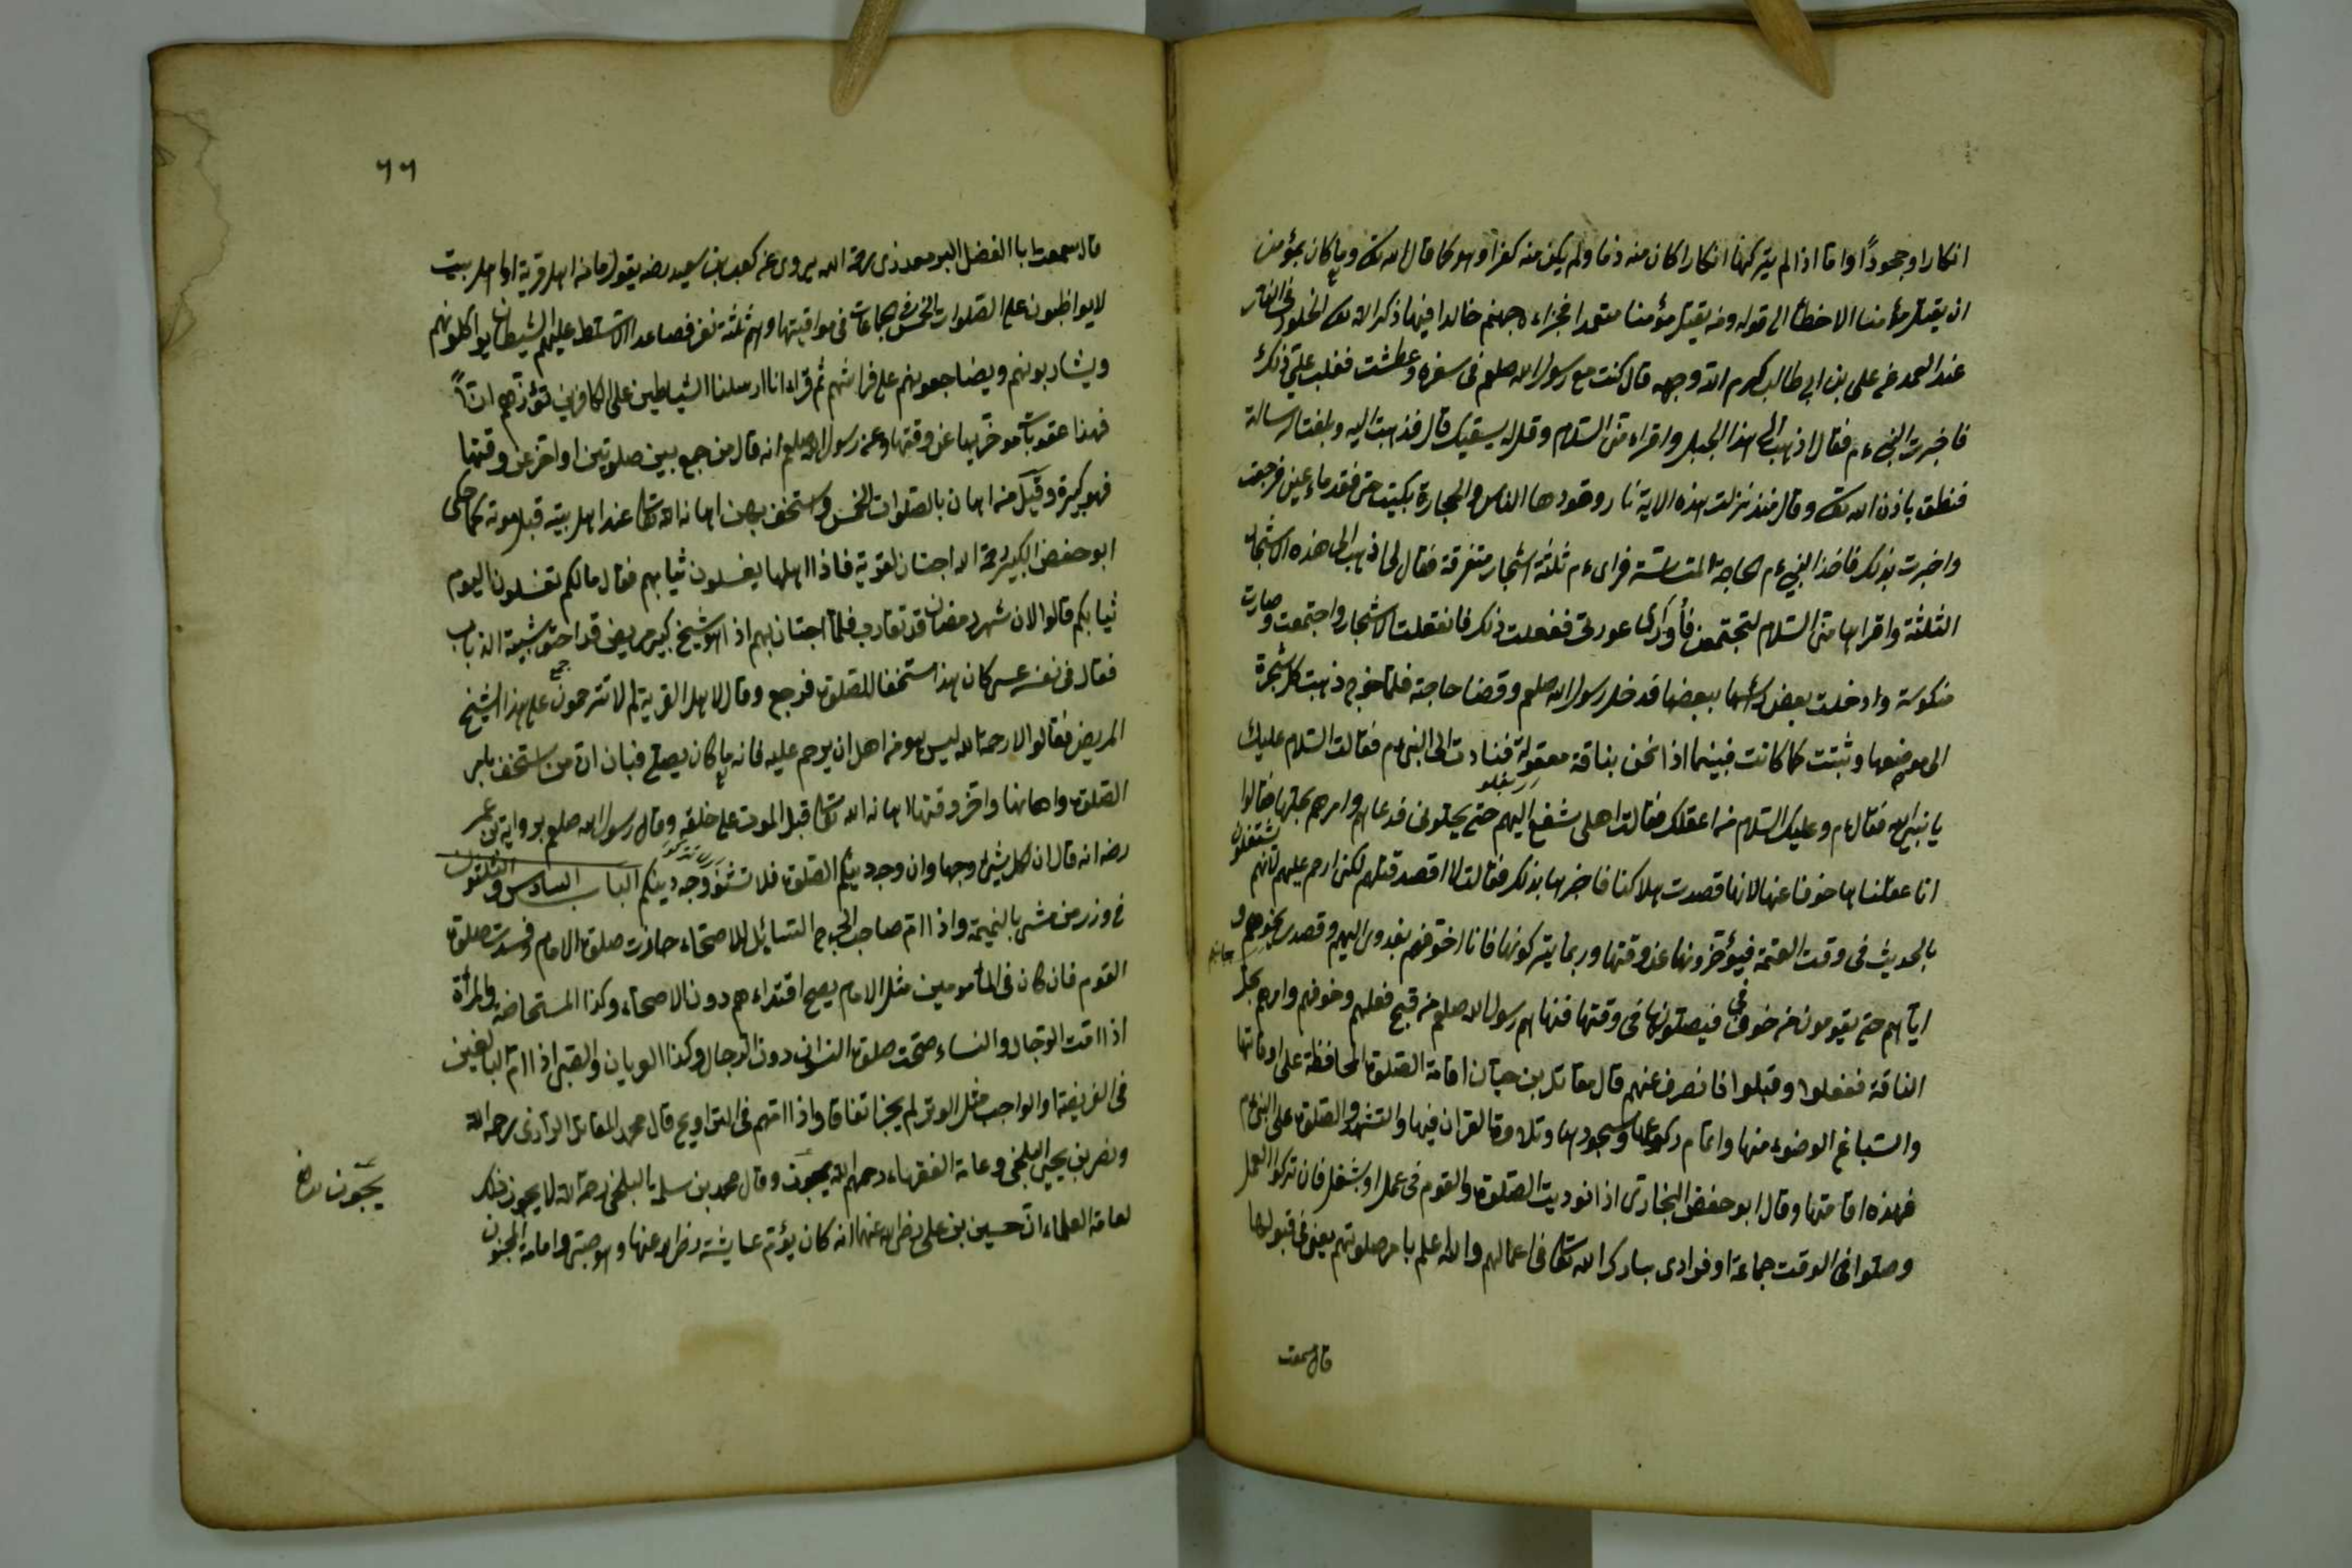 انكارا وجحودًا واما اذا لم يتركها انكارا كان منه ذما ولم يكن منه كفرا وهو كما قال الله تعا وما كان لمؤمن
ان يقتل مؤمنا الا خطأ الى قوله ومن يقتل مؤمنا متعمدا فجزاءه جهنم خالدا فيها ذكر الله تعا الخلود في النار
عند العمد عن على بن ابي طالب كرم الله وجهه قال كنت مع رسول الله صلعم فى سفره وعطشت فغلب علىّ ذلك
فاخبرت النبي ءم فقال اذهب الى هذا الجبل واقراءه منى السلام وقل له يسقيك قال فذهبت اليه وبلغت الرسالة
فنطق باذن الله تعا وقال منذ نزلت هذه الاية نارا وقودها الناس والحجارة بكيت حتى فقد ماء عينى فرجعت
واخبرت بذلك فاخذ النبي ءم الحاجة فراى ءم ثلثة اشجار متفرقة فقال لى اذهب الى هذه الاشجار
الثلثة واقراها منى السلام لتجتمعن عورتى ففعلت ذلك فانقعلت الاشجار واجتمعت وصارت
منكوسة وادخلت بعض رأسها ببعضها فدخل رسول الله صلعم وقضا حاجته فلما خرج ذهبت كل شجرة
الى موضعها وثبتت كما كانت فبينما اذا نحن بناقة معقولة فنادت الى النبي ءم فقالت السلام عليك
يا نبي الله فقال ءم وعليك السلام من اعقلك فقالت اهلى شفع اليهم حتى يحلونى فدعاهم وامرهم بحلها فقالوا
انا عقلناها خوفا عنها لانها قصدت هلاكنا فاخبرها بذلك فقالت لا اقصد قتلهم لكن ارحم عليهم لانهم يشتغلون
بالحديث فى وقت العتمة فيؤخرونها عن وقتها وربما يتركونها فانا اخوفهم وقصد نحوهم و
اياهم حتى يقومون من خوفى فيصلونها فى وقتها فنهاهم رسول الله صلعم من قبح فعلهم وخوفهم وامرهم بحل
الناقة ففعلوا وقبلوا فانصرف عنهم قال مقاتل بن حيان اقامة الصلوة المحافظة على اوقاتها
واسباغ الوضوء منها واتمام ركوعها وسجودها وتلاوة القران فيها والتشهد والصلوة على النبي ءم
فهذه اقامتها وقال ابو حفص البخارى اذا نوديت الصلوة والقوم فى عمل او شغل فان تركوا العمل
وصلوا فى الوقت جماعة او فرادى بارك الله تعا فى اعمالهم والله اعلم بامر صلوتهم يعنى فى قبولها
قال سمعت
٦٦
قال سمعت ابا الفضل رحمة الله يروى عن كعب بن سعيد رضه يقول ما من اهل قرية او اهل بيت
لا يواظبون على الصلوات الخمس فى جماعات فى مواقيتها وهم ثلثة نفر فصاعدا الا تسلط عليهم الشيطان يواكلونهم
ويشاربونهم ويضاجعونهم على فراشهم ثم قراء انا ارسلنا الشياطين على الكافرين تؤزهم ازًّا
فهذا عقوبات مؤخريها عن وقتها وعن رسول الله صلعم انه قال من جمع بين صلوتين او اخر عن وقتها
فهو كبيرة وقيل من اهان بالصلوات الخمس واستخف بهن اهانه الله تعا عند اهل بيته قبل موته كما حكى
ابو حفص الكبير رحمة الله اجتاز لقرية فاذا اهلها يغسلون ثيابهم فقال مالكم تغسلون اليوم
ثيابكم قالوا الان شهر رمضان قد تقارب فلما اجتاز بهم اذ هو شيخ كبير مريض قد احتوشته الذباب
فقال فى نفسه عسى كان هذا استخفا للصلوة فرجع وقال لاهل القرية لم لا تترحمون على هذا الشيخ
المريض فقالوا لا رحمة الله ليس هو من اهل ان يرحم عليه فانه ما كان يصلى فبان ان من استخف بامر
الصلوة واهانها واخر وقتها اهانه الله تعا قبل الموت على خلقه وقال رسول الله صلعم برواية بن عمر
رضه انه قال ان لكل شيئ وجها وان وجه دينكم الصلوة فلا تشنؤ وجه دينكم الباب السادس والثلثون
فى وزر من مشى بالنميمة واذا ام صاحب الجرح السائل للاصحاء جازت صلوة الامام وفسدت صلوة
القوم فان كان فى المأمومين مثل الامام يصح اقتداءهم دون الاصحاء وكذا المستحاضة والمرأة
اذا امت الرجال والنساء صحت صلوة النسوان دون الرجال وكذا العريان والصبى اذا ام البالغين
فى الفريضة او الواجب مثل الوتر لم يجز اتفاقا واذا امهم فى التراويح قال محمد المقاتل الرازى رحمه الله
ونصر بن يحيى البلخى وعامة الفقهاء رحمهم الله يجوزن وقال محمد بن سلمه البلخى رحمة الله لا يجوز ذلك
لعامة العلماء ان حسين بن على رضى الله عنها انه كان يؤم عايشة رضى الله عنها وهو صبى وامامة المجنون